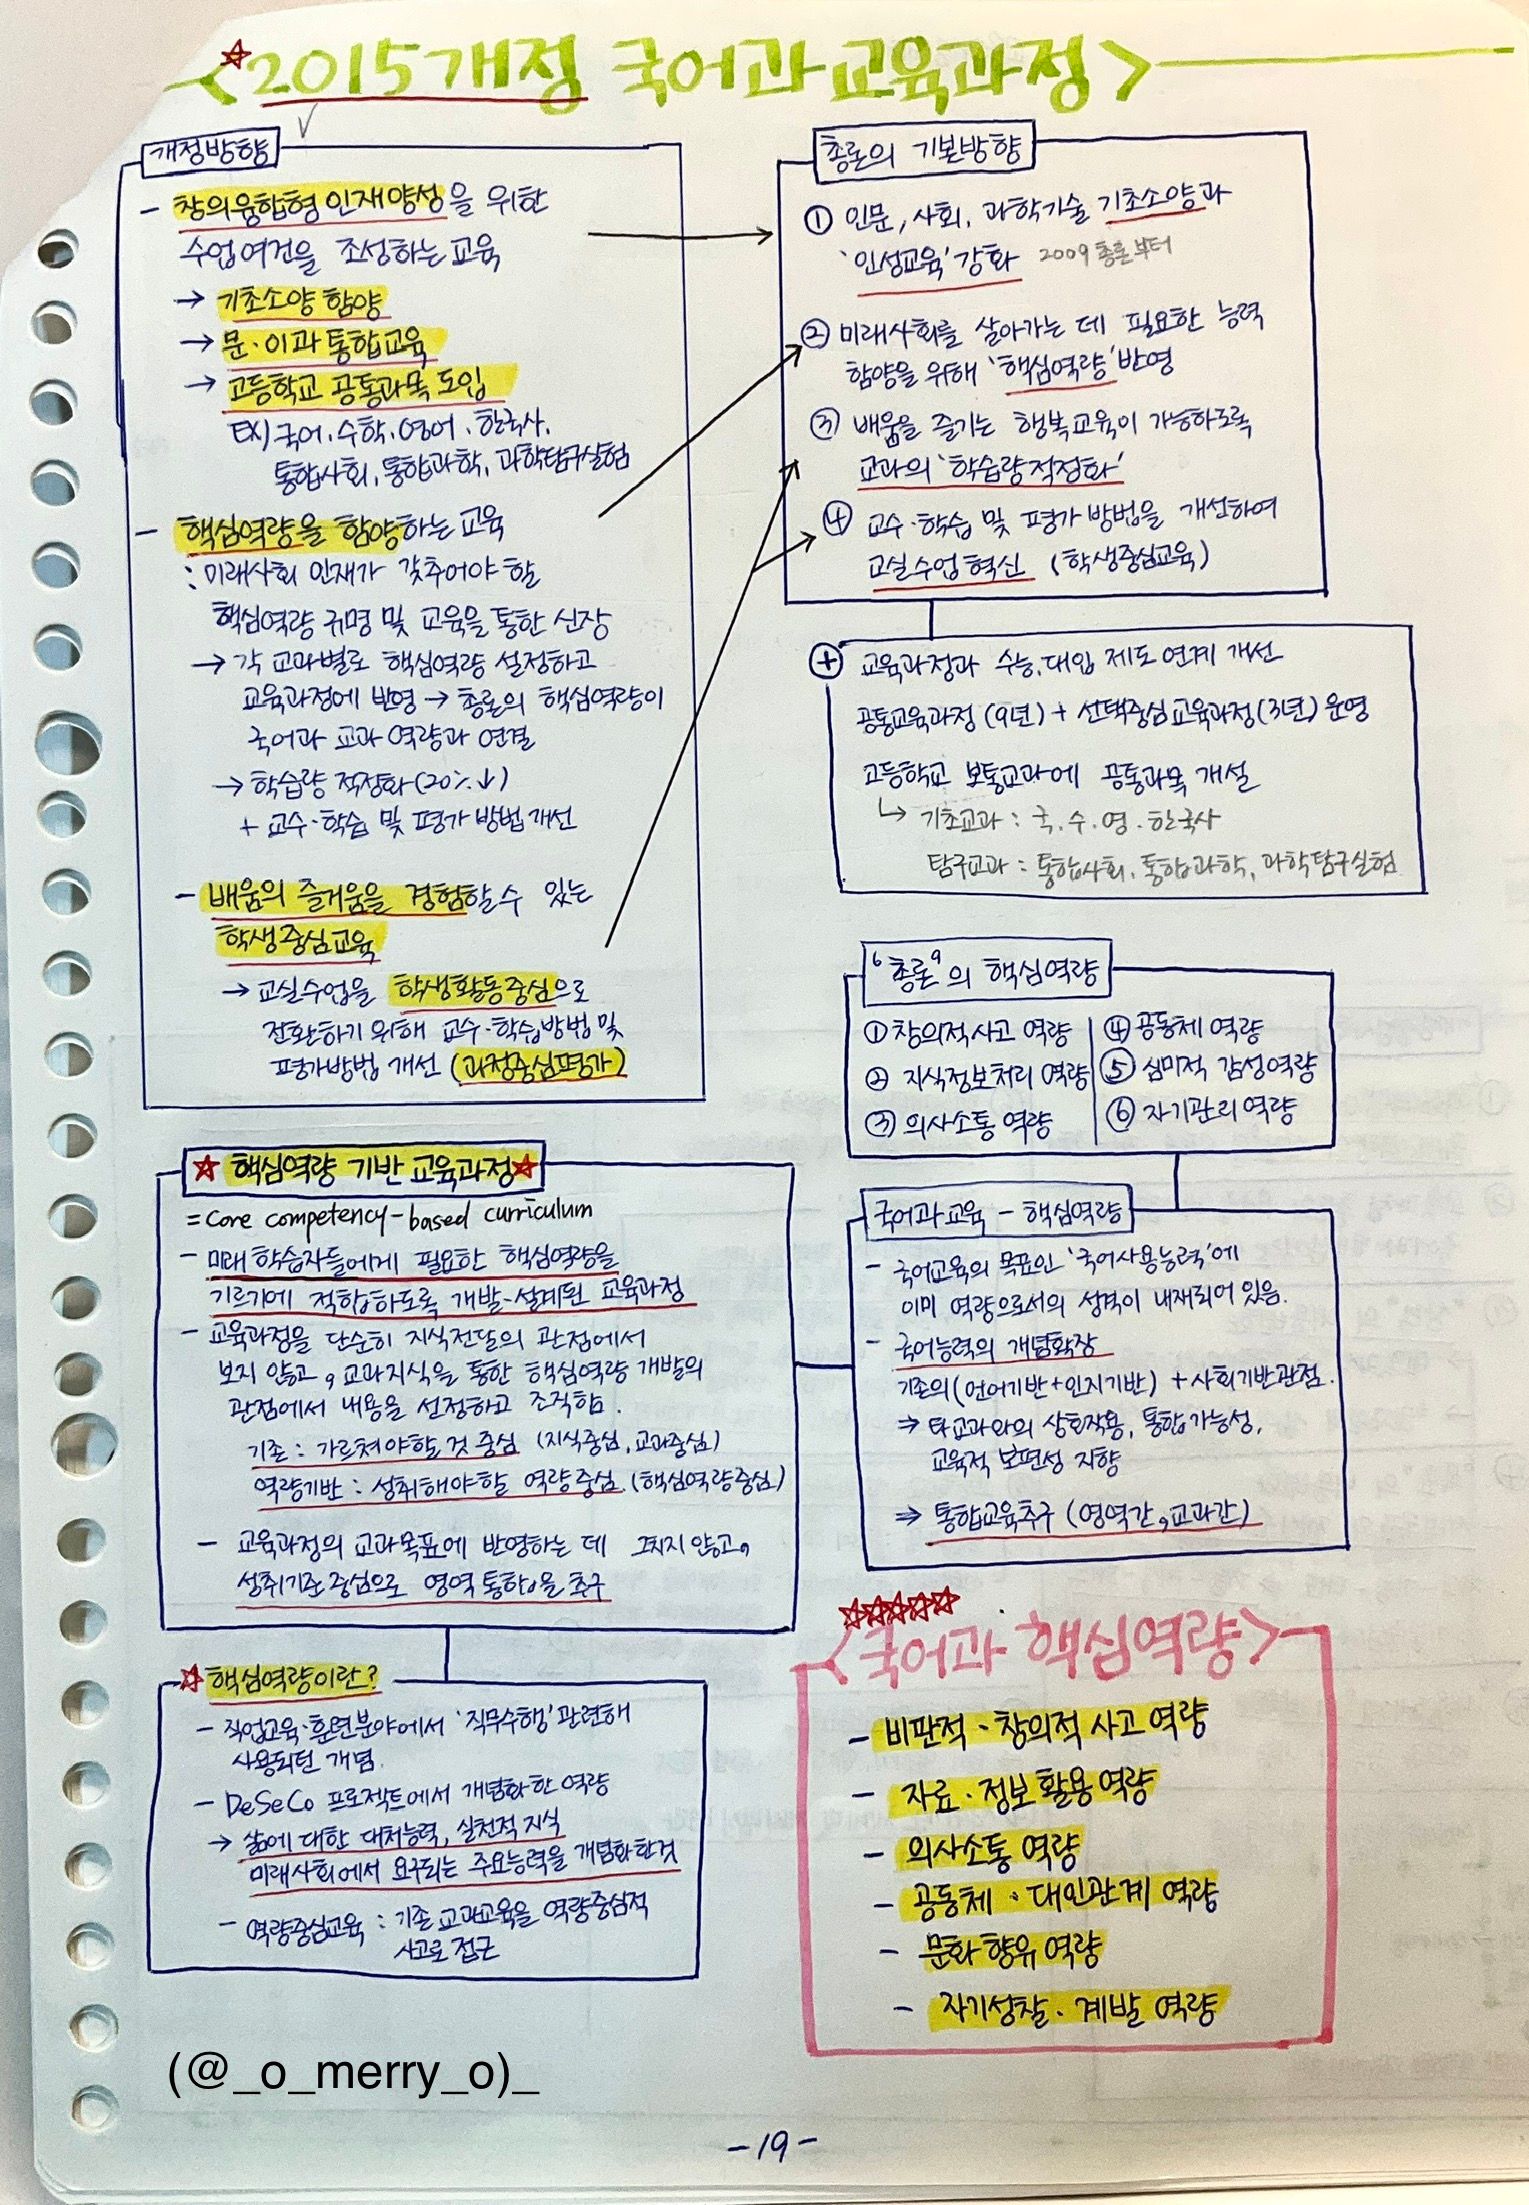 ☆<2015개정 국어과 교육과정>
개정방향
- 창의융합형 인재양성을 위한
수업여건을 조성하는 교육
→ 기초소양 함양
→ 문·이과 통합교육
→ 고등학교 공통과목 도입
EX) 국어·수학·영어·한국사,
통합사회, 통합과학, 과학탐구실험
- 핵심역량을 함양하는 교육
: 미래사회 인재가 갖추어야 할
핵심역량 규명 및 교육을 통한 신장
→ 각 교과별로 핵심역량 설정하고
교육과정에 반영 → 총론의 핵심역량이
국어과 교과 역량과 연결
→ 학습량 적정화(20%↓)
+ 교수·학습 및 평가 방법 개선
- 배움의 즐거움을 경험할 수 있는
학생중심교육
→ 교실수업을 학생활동중심으로
전환하기 위해 교수·학습방법 및
평가방법 개선 (과정중심평가)
총론의 기본방향
① 인문, 사회, 과학기술 기초소양과
'인성교육' 강화 2009 총론부터
② 미래사회를 살아가는 데 필요한 능력
함양을 위해 '핵심역량' 반영
③ 배움을 즐기는 행복교육이 가능하도록
교과의 '학습량 적정화'
④ 교수·학습 및 평가 방법을 개선하여
교실수업 혁신 (학생중심교육)
⊕ 교육과정과 수능, 대입 제도 연계 개선
공통교육과정(9년) + 선택중심 교육과정(3년) 운영
고등학교 보통교과에 공통과목 개설
↳ 기초교과 : 국·수·영·한국사
탐구교과 : 통합사회, 통합과학, 과학탐구실험
"총론"의 핵심역량
① 창의적 사고 역량
② 지식정보처리 역량
③ 의사소통 역량
④ 공동체 역량
⑤ 심미적 감성역량
⑥ 자기관리 역량
☆ 핵심역량 기반 교육과정☆
= core competency-based curriculum
- 미래 학습자들에게 필요한 핵심역량을
기르기에 적합하도록 개발·설계된 교육과정
- 교육과정을 단순히 지식전달의 관점에서
보지 않고, 교과지식을 통한 핵심역량 개발의
관점에서 내용을 선정하고 조직함.
기존 : 가르쳐야할 것 중심 (지식중심, 교과중심)
역량기반 : 성취해야할 역량중심. (핵심역량중심)
- 교육과정의 교과목표에 반영하는 데 그치지 않고,
성취기준 중심으로 영역 통합을 추구
국어과교육 - 핵심역량
- 국어교육의 목표인 '국어사용능력'에
이미 역량으로서의 성격이 내재되어 있음.
- 국어능력의 개념확장
기존의 (언어기반+인지기반) + 사회기반관점.
⇒ 타교과와의 상호작용, 통합가능성,
교육적 보편성 지향
⇒ 통합교육추구 (영역간, 교과간)
☆핵심역량이란?
- 직업교육·훈련분야에서 '직무수행' 관련해
사용되던 개념.
- DeSeCo 프로젝트에서 개념화한 역량
→ 삶에 대한 대처능력, 실천적 지식
미래사회에서 요구되는 주요능력을 개념화한것
- 역량중심교육 : 기존 교과교육을 역량중심적
사고로 접근
☆☆☆☆☆
<국어과 핵심역량>
- 비판적·창의적 사고 역량
- 자료·정보 활용 역량
- 의사소통 역량
- 공동체·대인관계 역량
- 문화 향유 역량
- 자기성찰·계발 역량
(@_o_merry_o)_
-19-